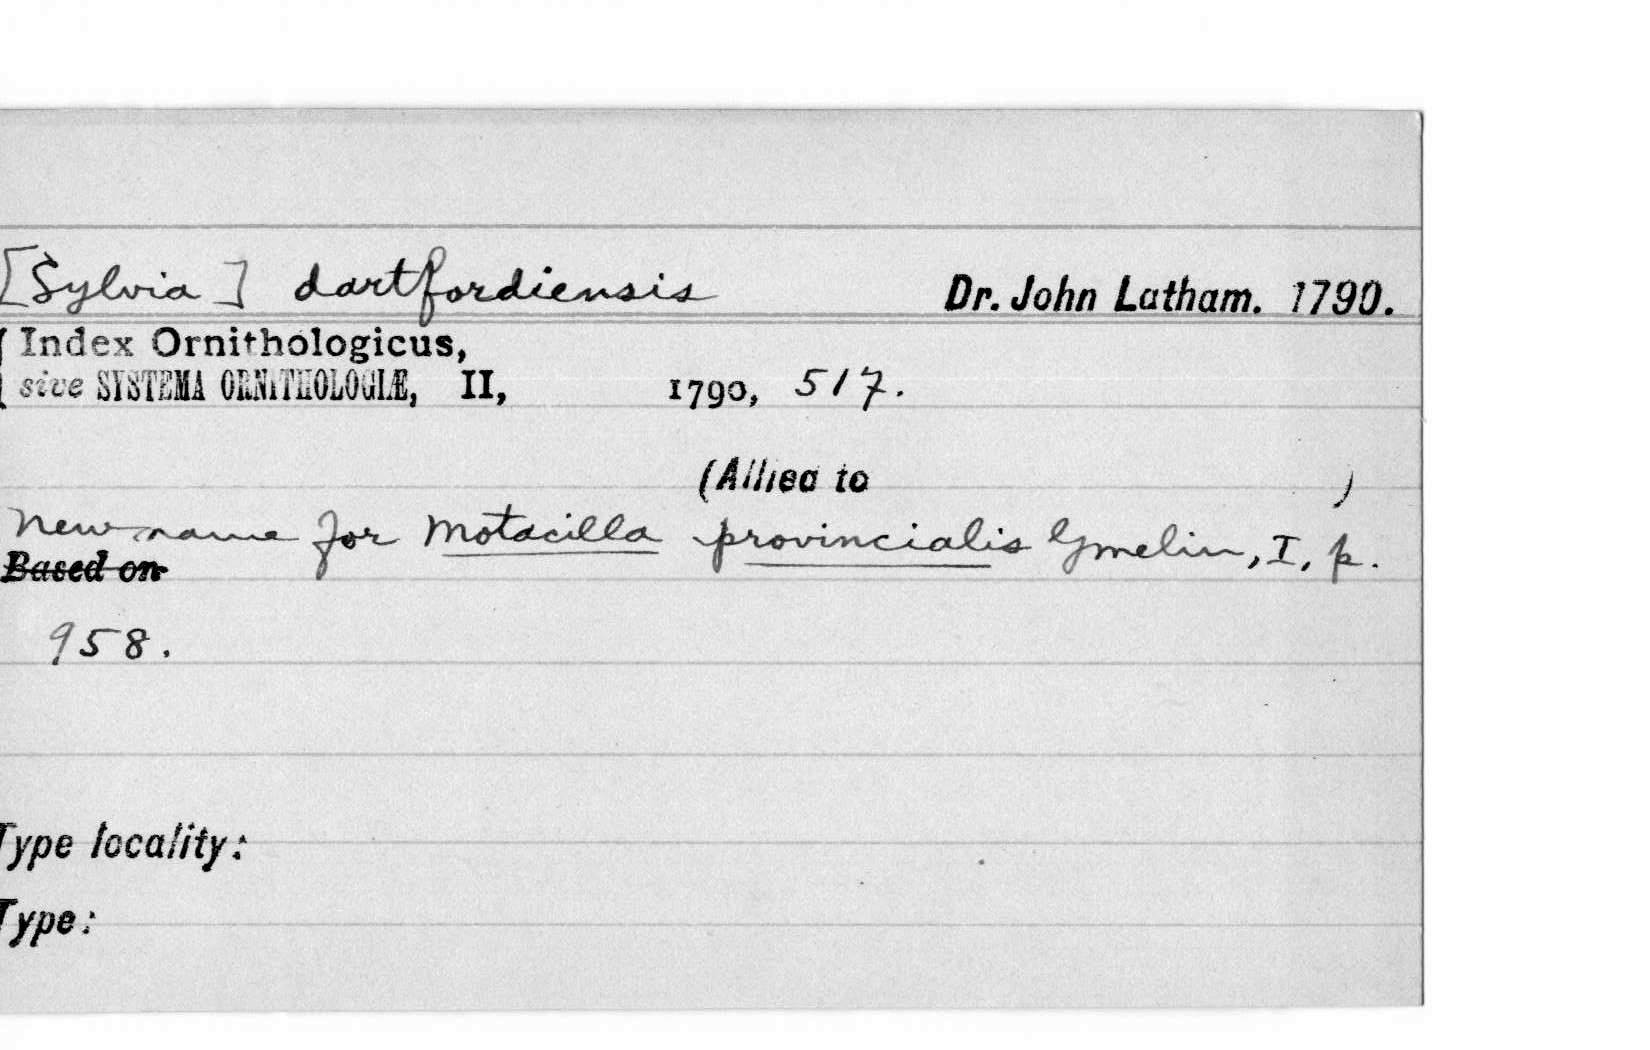 [Sylvia] dartfordiensis Dr. John Latham. 1790.
Index Ornithologicus,
sive SYSTEMA ORNITHOLOGIÆ, II, 1790, 517.
(Allied to )
New name for Motacilla provincialis Gmelin, I, p.
Based on
958.
Type locality:
Type: